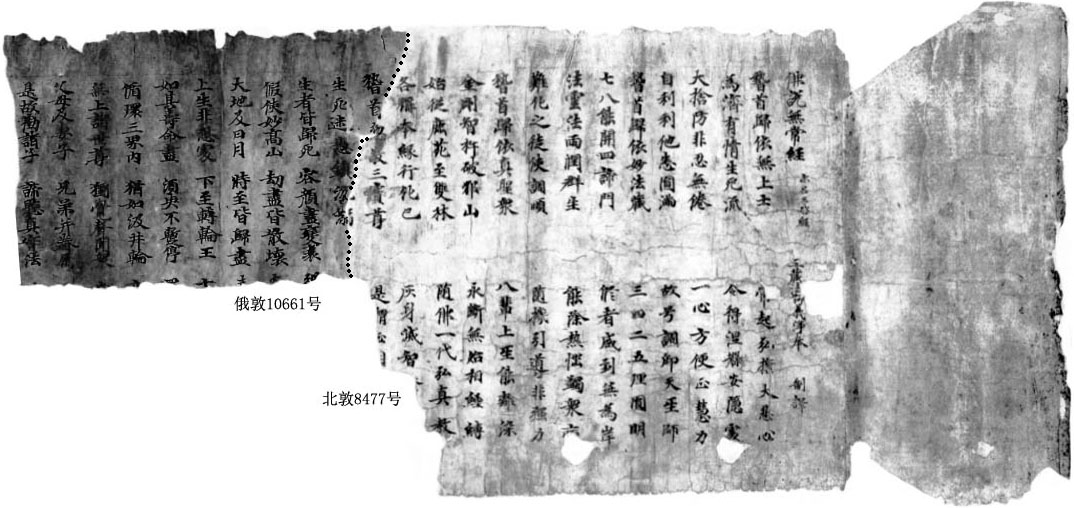 佛說無常經 亦名三啓經 三藏法師義淨奉 制譯
稽首歸依無上士 常起弘擔大悲心
為濟有情生死流 令得涅槃安隱處
大捨防非忍無倦 一心方便正慧力
自利利他悉圓滿 故号調御天人師
稽首歸依妙法藏 三四二五理圓明
七八能開四諦門 能者咸到無為岸
法雲法雨潤群生 能除熱惱蠲衆
難化之徒使調順 随機引導非強力
稽首歸依真聖衆 八輩上人能離染
金剛智杵破邪山 永斷無始相纏縛
始從鹿苑至雙林 随佛一代弘真教
各稱本緣行化已 灰身滅智
稽首 三寶尊 是謂正
生死迷
生者皆歸死 容顏盡變衰
假使妙高山 劫盡皆散壞
大地及日月 時至皆歸盡
上生非想處 下至轉輪王
如其壽命盡 須臾不暫停
循環三界內 猶如汲井輪
無上諸世尊 獨覺聲聞衆
父母及妻子 兄弟并眷
是故勸諸人 諦聽真實法
俄敦10661号
北敦8477号